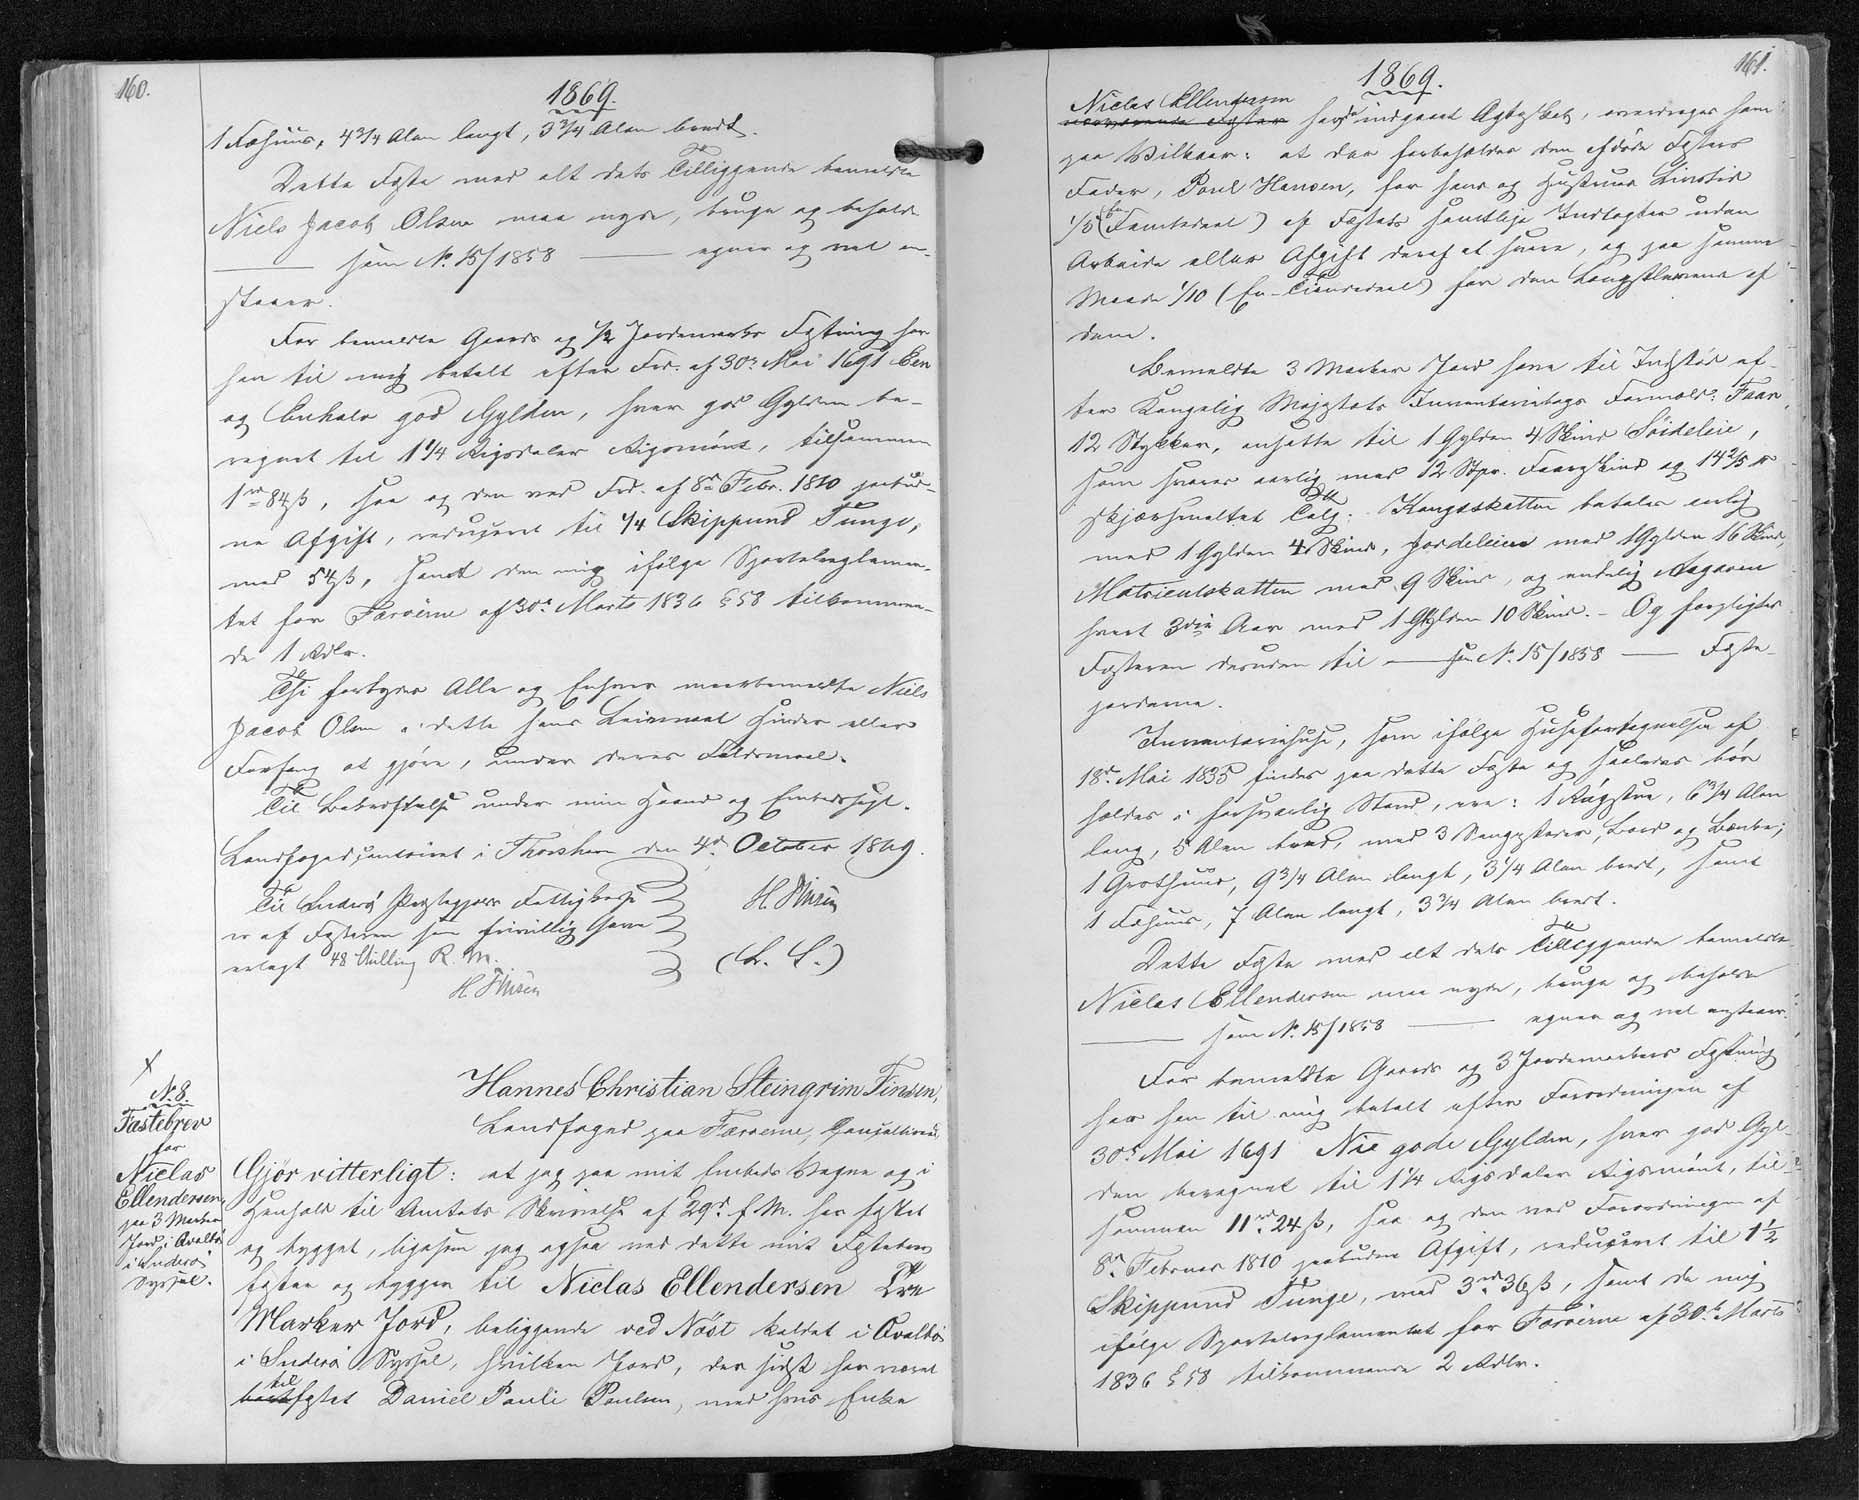 160.
1869.
1 Fæhuus, 4 3/4 Alen langt, 3 3/4 Alen bredt.
Dette Fæste med alt dets Tilliggende bemeldte
Niels Jacob Olsen maa nyde, bruge og beholde
——— som No 15/1858 ——— egner og vel an-
staaer.
For bemeldte Gaards og 1/2 Jordemarks Fæstning har
han til mig betalt efter Frd. af 30te Mai 1691 Een
og Enhalv god Gylden, hver god Gylden be-
regnet til 1 1/4 Rigsdaler Rigsmønt, tilsammen
1 rd 84 ß, saa og den ved Frd. af 8de Febr. 1810 paabud-
ne Afgift, reduceret til 1/4 Skippund Tunge,
med 54 ß, samt den mig ifølge Sportelreglemen-
tet for Færøerne af 30te Marts 1836 § 58 tilkommen-
de 1 Rdlr.
Thi forbydes Alle og Enhver meerbemeldte Niels
Jacob Olsen i dette hans Leiemaal Hinder eller
Forfang at gjøre, under deres Faldsmaal.
Til Bekræftelse under min Haand og Embedssegl.
Landfogedcontoiret i Thorshavn den 4de October 1869.
Til Suderø Præstegjælds Fattigkasse
er af Fæsteren som frivillig Gave
erlagt 48 Skilling R. M.
H. Finsen
H. Finsen
(L. S.)
No 8.
Fæstebrev
for
Niclas
Ellendersen
paa 3 Marker
Jord i Qvalbø
i Suderø
Syssel.
Hannes Christian Steingrim Finsen,
Landfoged paa Færøerne,
Gjør vitterligt: at jeg paa mit Embeds Vegne og i
Henhold til Amtets Skrivelse af 29de f. M. har fæstet
og bygget, ligesom jeg ogsaa ved dette mit Fæstebrev
fæster og bygger til Niclas Ellendersen Tre
Marker Jord, beliggende ved Nøst kaldet i Qvalbø
i Suderø Syssel, hvilken Jord, der sidst har været
til
fæstet Daniel Pauli Poulsen, med hvis Enke
161.
1869.
Niclas Ellendersen
nærværende Fæster har indgaaet Ægteskab, overdrages ham
paa Vilkaar: at der forbeholdes den afdøde Fæsters
Fader, Poul Hansen, for hans og Hustrues Livstid
1/5 (Femtedeel) af Fæstets samtlige Indtægter uden
Arbeide eller Afgift deraf at svare, og paa samme
Maade 1/10 (En Tiendedeel) for den Længstlevende af
dem.
Bemeldte 3 Marker Jord have til Indstød ef-
ter Kongelig Majestæts Inventariebogs Formeld: Faar
12 Stykker, ansatte til 1 Gylden 4 Skind Søideleie,
som svares aarlig med 12 Stpr. Faareskind og 14 2/5 ℔
skjærsmeltet Talg. Kongsskatten betales aarlig
med 1 Gylden 4 Skind, Jordeleien med 1 Gylden 16 Skind,
Matriculskatten med 9 Skind, og endelig
hvert 3die Aar med 1 Gylden 10 Skind. – Og forpligtes
Fæsteren desuden til ——— som No. 15/1858 ——— Fæste-
jorderne.
Inventariehuse, som ifølge Husefortegnelsen af
18de Mai 1835 findes paa dette Fæste og saaledes bør
holdes i forsvarlig Stand, ere: 1 Røgstue, 6 3/4 Alen
lang, 5 Alen bred, med 3 Sengesteder, Bord og Bænke;
1 Grothuus, 9 3/4 Alen langt, 3 1/4 Alen bredt, samt
1 Fæhuus, 7 Alen langt, 3 3/4 Alen bredt.
Dette Fæste med alt dets Tilliggende bemeldte
Niclas Ellendersen maa nyde, bruge og beholde
——— som No. 15/1858 ——— egner og vel anstaaer.
For bemeldte Gaards og 3 Jordemarkers Fæstning
har han til mig betalt efter Forordningen af
30te Mai 1691 Nie gode Gylden, hver god Gyl-
den beregnet til 1 1/4 Rigsdaler Rigsmønt, til-
sammen 11 rd 24 ß, saa og den ved Forordningen af
8de Februar 1810 paabudne Afgift, reduceret til 1 1/2
Skippund Tunge, med 3 rd 36 ß, samt de mig
ifølge Sportelreglementet for Færøerne af 30te Marts
1836 § 58 tilkommende 2 Rdlr.